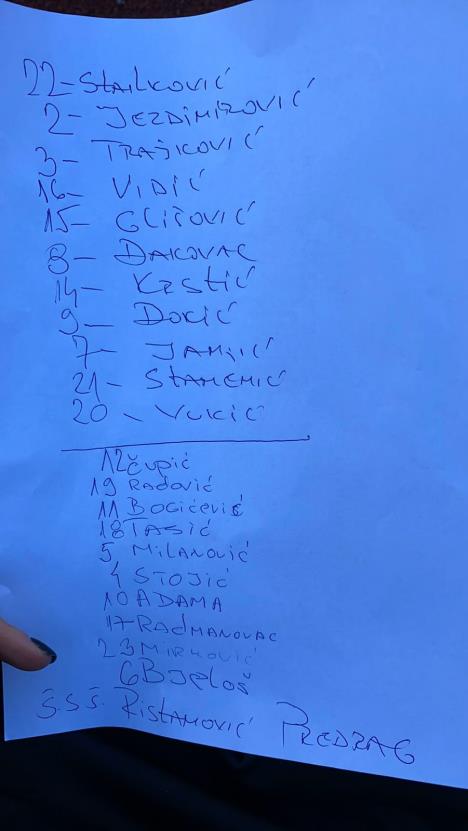 22-STAILKOVIĆ
2- JEZDIMIROVIĆ
3- TRAJKOVIĆ
16- VIDIĆ
15- GLIŠOVIĆ
8- ĐAKOVAC
14- KRSTIĆ
9- ĐOKIĆ
7- JANJIĆ
21- STAMENIĆ
20- VUKIĆ
12 ČUPIĆ
19 RADOVIĆ
11 BOGIĆEVIĆ
18 TASIĆ
5 MILANOVIĆ
4 STOJIĆ
10 ADAMA
17-RADMANOVAC
23 MIRKOVIĆ
6 BJELOŠ
Š.S Š. RISTANOVIĆ PREDRAG